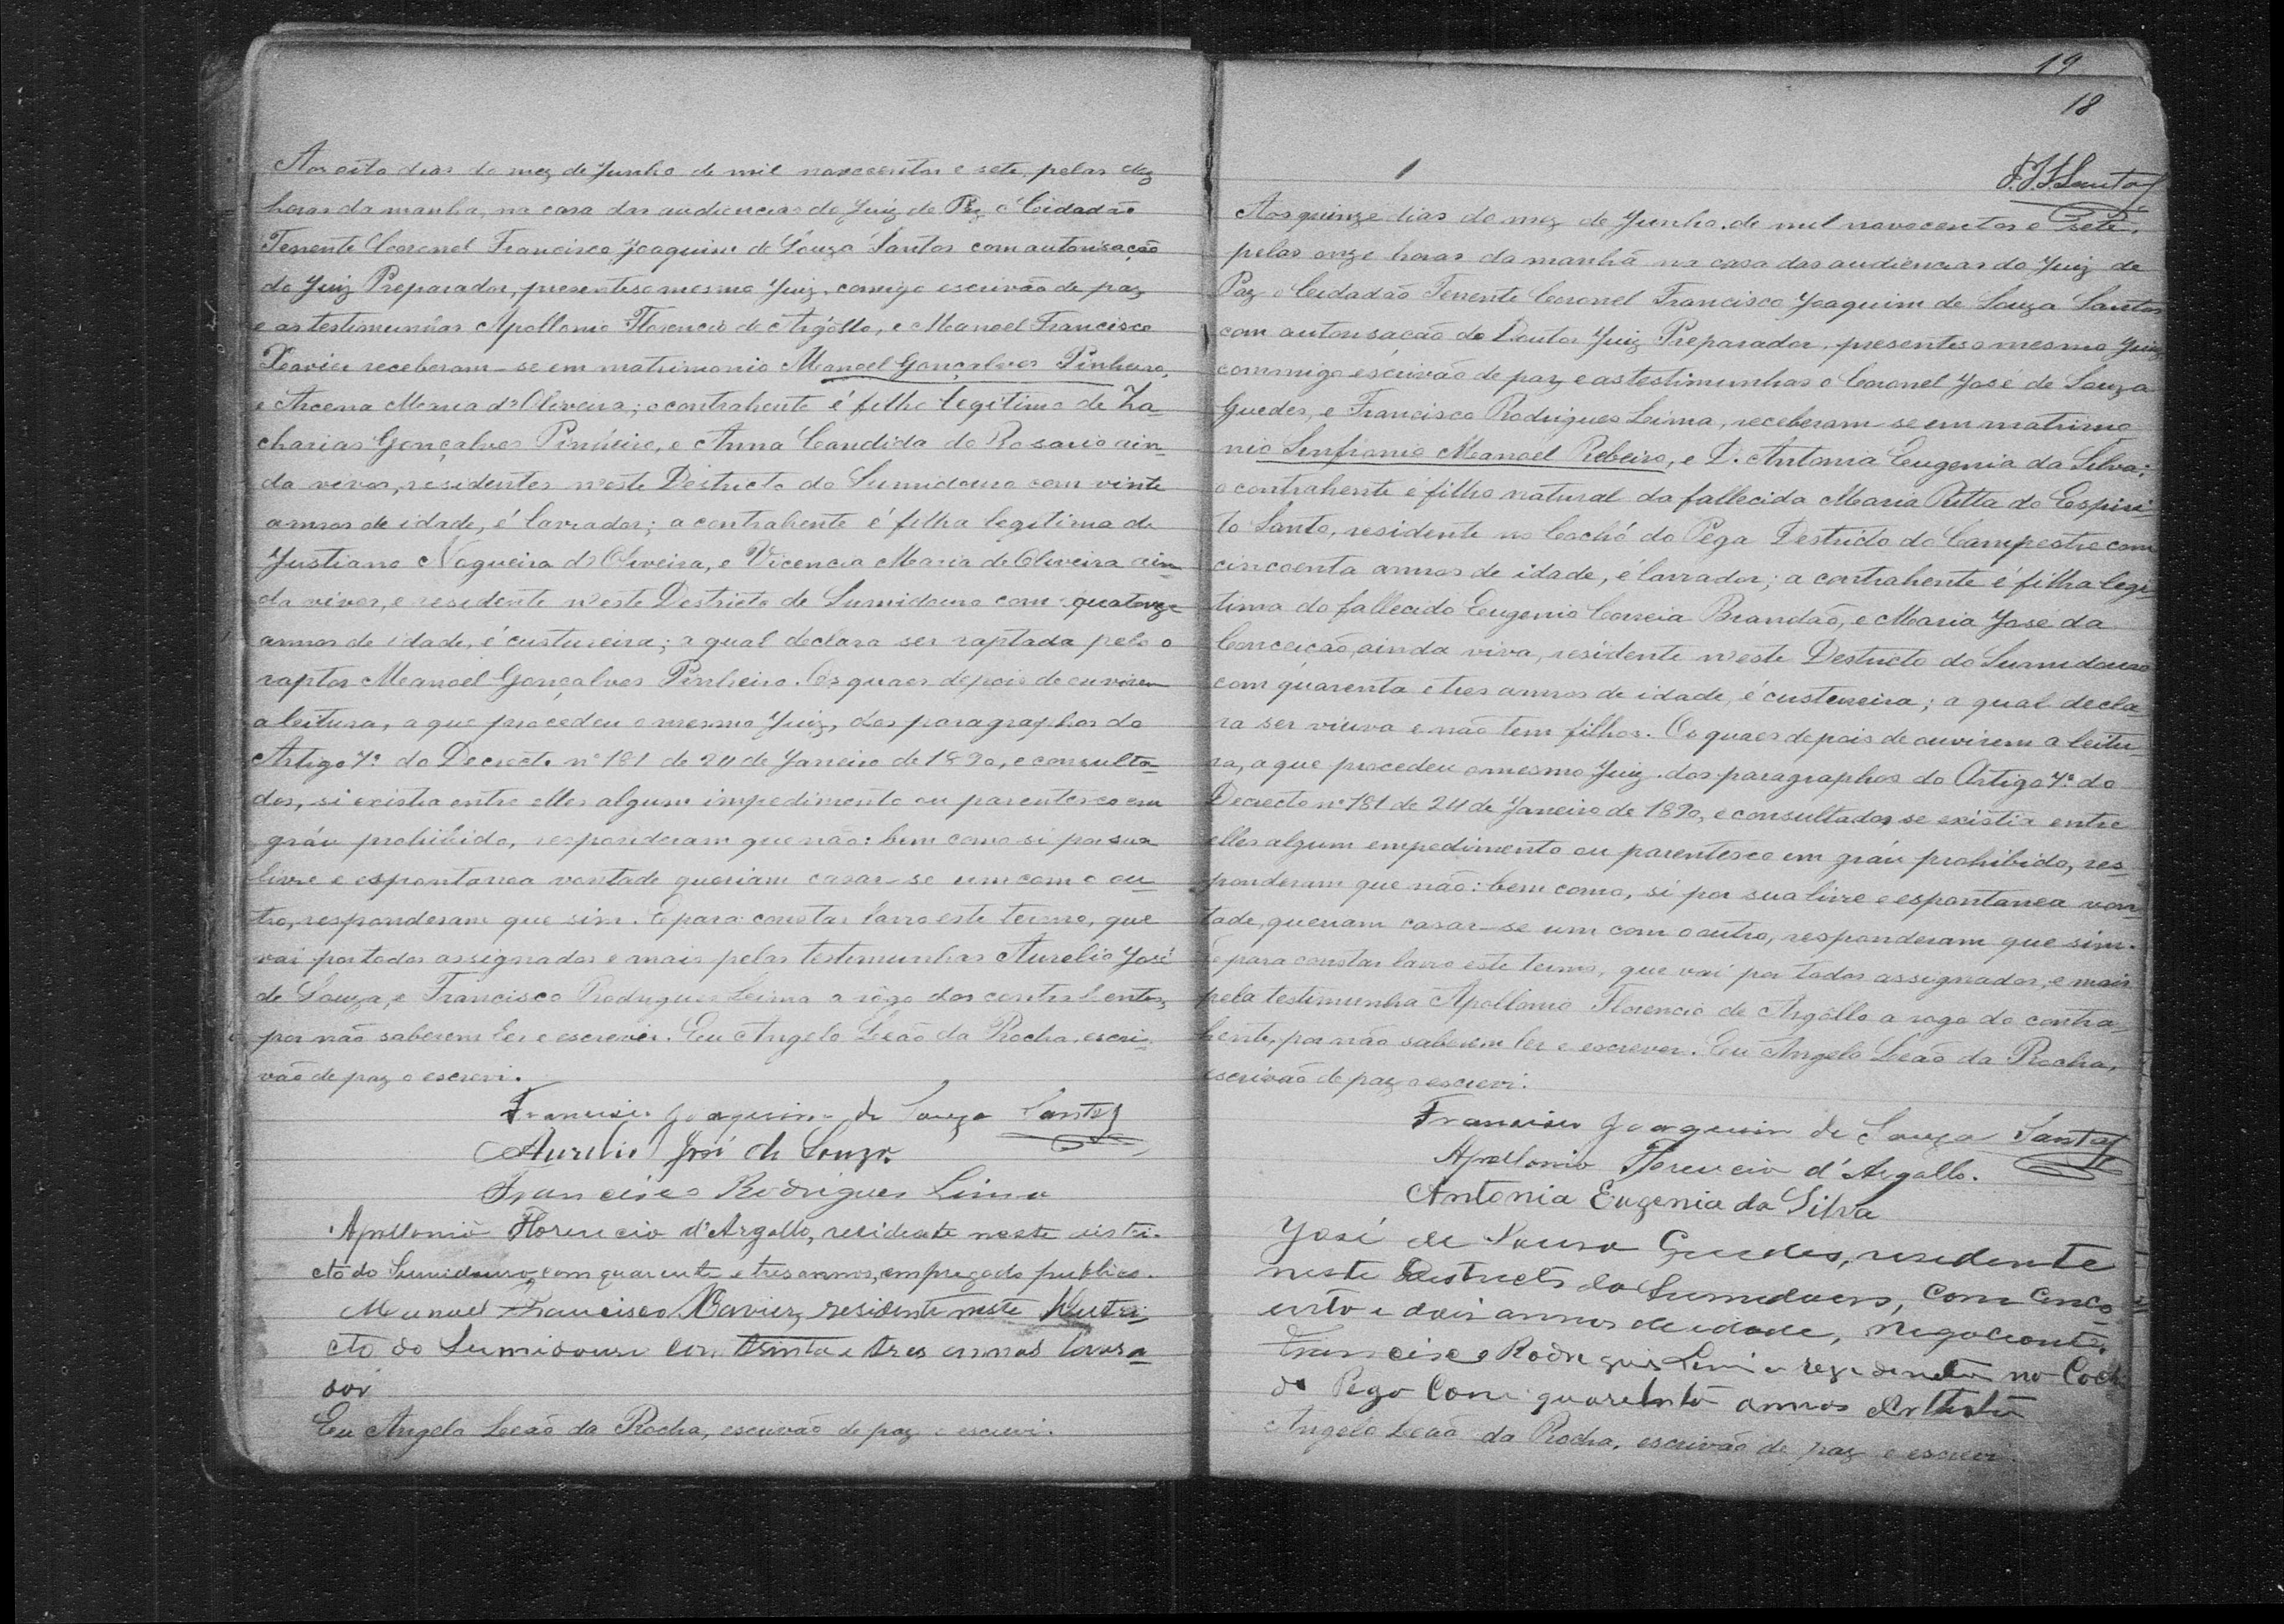 Aos oito dias do mez de Junho de mil novecentos e sete, pelas dez
horas da manhã, na casa das audiencias do Juiz de Paz o Cidadão
Tenente Coronel Francisco Joaquim de Souza Santos com autorisação
do Juiz Preparador, presentes o mesmo Juiz, comigo escrivão de paz
e as testimunhas Apollonio Florencio de Argôllo, e Manoel Francisco
Xavier receberam-se em matrimonio Manoel Gonçalves Pinheiro,
e Maria d'Oliveira; o contrahente é filho legitimo de Za
charias Gonçalves Pinheiro, e Anna Candida do Rosario ain-
da vivos, residentes n'este Districto do Sumidouro com vinte
annos de idade, é lavrador; a contrahente é filha legitima de
Justiano Nogueira d'Oliveira, e Vicencia Maria de Oliveira ain-
da vivos, e residente n'este Destricto de Sumidouro com quatorze
annos de idade, é custureira; a qual declara ser raptada pelo o
raptor Manoel Gonçalves Pinheiro. Os quaes depois de ouvirem
a leitura, a que procedeu o mesmo Juiz, dos paragraphos do
Artigo 7º do Decreto nº 181 de 24 de Janeiro de 1890, e consulta-
dos, si existia entre elles algum impedimento ou parentesco em
gráu prohibido, responderam que não: bem como si por sua
livre e espontanea vontade queriam casar-se um com o ou-
tro, responderam que sim. E para constar lavro este termo, que
vai por todos assignados e mais pelas testimunhas Aurelio José
de Souza, e Francisco Rodrigues Leima a rôgo dos contrahentes,
por não saberem ler e escrever. Eu Angelo Leão da Rocha, escri-
vão de paz o escrevi.
Francisco Joaquim de Souza Santos
Aurelio José de Souza
Francisco Rodrigues Lima
Apollonio Florencio d'Argollo, residente neste distri-
cto do Sumidouro, com quarenta e tres annos, empregado publico.
Manuel Francisco Xavier, residente neste Destri-
cto do Sumidouro com trinta e tres annos lavra-
dor
Eu Angelo Leão da Rocha, escrivão de paz o escrevi.
19
18
F.J.S. Santos
Aos quinze dias do mez de Junho de mil novecentos e sete,
pelas onze horas da manhã na casa das audiencias do Juiz de
Paz o Cidadão Tenente Coronel Francisco Joaquim de Souza Santos
com autorisação do Doutor Juiz Preparador, presentes o mesmo Juiz,
commigo escrivão de paz, e as testimunhas o Coronel José de Souza
Guedes, e Francisco Rodrigues Leima, receberam-se em matrimo
nio Sinfronio Manoel Ribeiro, e D. Antonia Eugenia da Silva;
o contrahente é filho natural da fallecida Maria Ritta do Espiri-
to Santo, residente no Cochó do Pega Destricto do Campestre com
cincoenta annos de idade, é lavrador; a contrahente é filha legi-
tima do fallecido Eugenio Correia Brandão, e Maria Jose da
Conceição, ainda viva, residente n'este Destricto do Sumidouro
com quarenta e tres annos de idade, é custureira; a qual decla-
ra ser viuva e não tem filhos. Os quaes depois de ouvirem a leitu-
ra, a que procedeu o mesmo Juiz dos paragraphos do Artigo 7º do
Decreto nº 181 de 24 de Janeiro de 1890, e consultados se existia entre
elles algum empedimento ou parentesco em gráu prohibido, res-
ponderam que não: bem como, si por sua livre e espontanea von-
tade, queriam casar-se um com o outro, responderam que sim.
E para constar lavro este termo, que vai por todos assignados, e mais
pela testimunha Apollonio Florencio de Argôllo a rogo do contra-
hente, por não saberem ler e escrever. Eu Angelo Leão da Rocha,
escrivão de paz o escrevi.
Francisco Joaquim de Souza Santos
Apollonio Florencio d'Argollo.
Antonia Eugenia da Silva
José de Souza Guedes, residente
neste Destricto do Sumidouro, com cinco-
enta e dois annos de idade, negociante.
Francisco Rodrigues Lima rezidente no Coch
do Pega Com quarenta annos Artista
Angelo Leão da Rocha, escrivão de paz o escrevi